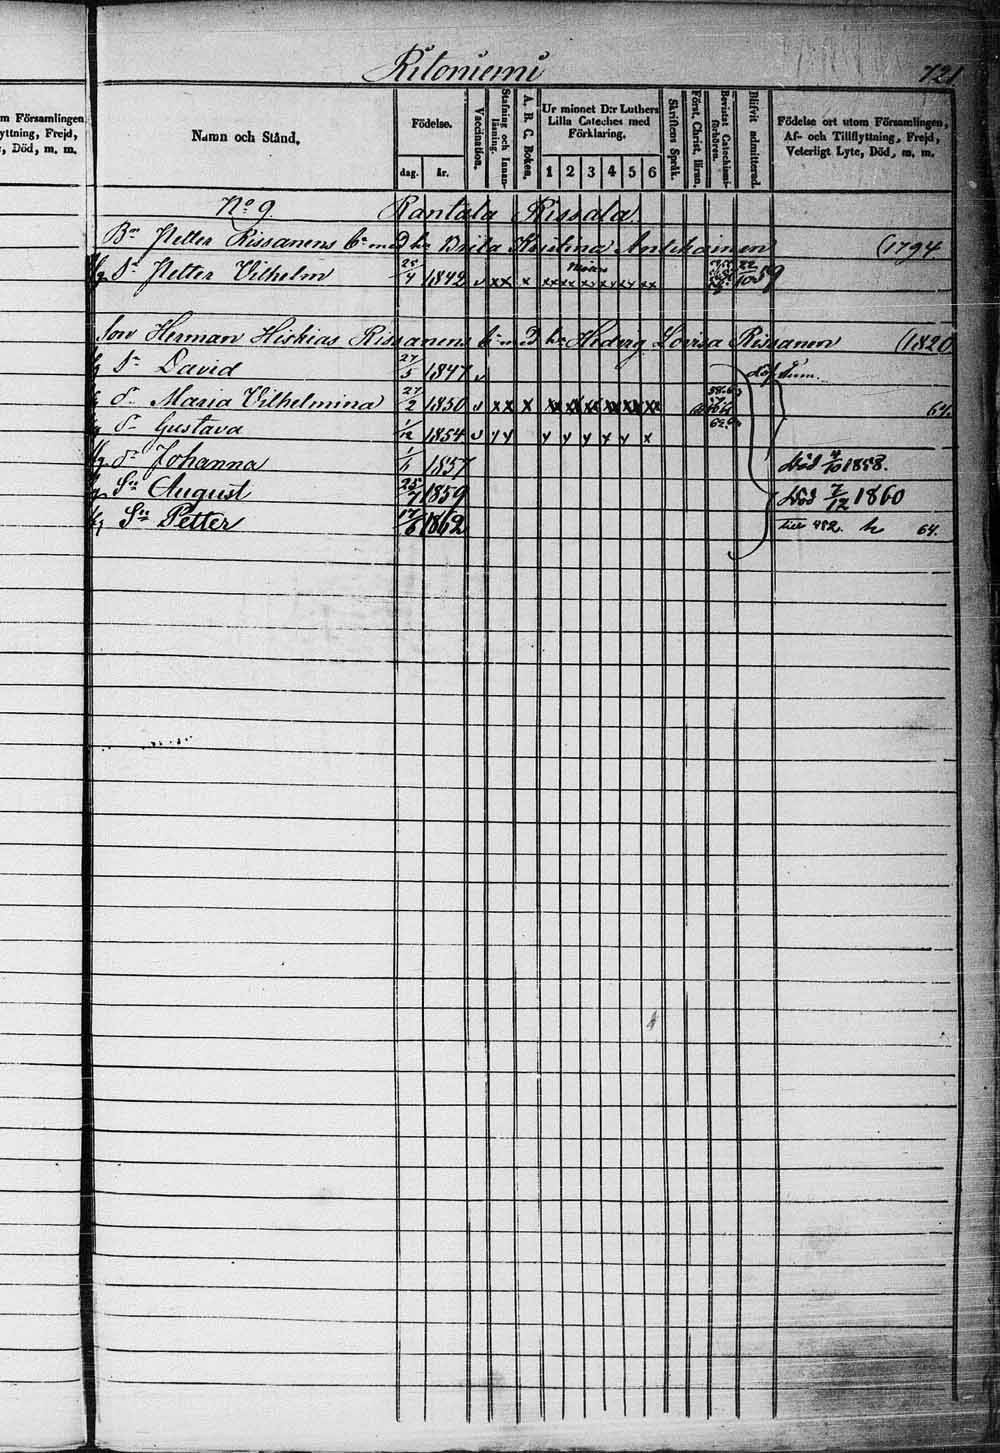 Ritoniemi
721
m Församlingen
yttning, Frejd,
, Död, m. m.
Namn och Stånd.
Födelse.
dag. år.
Vaccination.
Stafning och Innanläsning.
A. B. C. Boken.
Ur minnet D:r Luthers Lilla Cateches med Förklaring.
1 2 3 4 5 6
Skriftens Språk.
Först. Christ. läran.
Bevistat Catechismiförhören.
Blifvit admitterad.
Födelse ort utom Församlingen, Af- och Tillflyttning, Frejd, Veterligt Lyte, Död, m. m.
No 9. Rantala Rissala
Bn Petter Rissanens med Brita Kristina Antikainen (1794
Petter Vilhelm 25/4 1842 v xx x xx xx xx xx xx xx 22/10 59
Son Herman Hiskias Rissanens Hedvig Lovisa Rissanen (1820
David 27/5 1847 v
Maria Vilhelmina 27/2 1850 v xx x xx xx xx xx xx xx 64.
Gustava 1/12 1854 v y y y y y y y x
Johanna 1/6 1857 Död 4/10 1858.
Sn August 25/7 1859 Död 7/12 1860
Sn Petter 17/6 1862 till 482. 64.